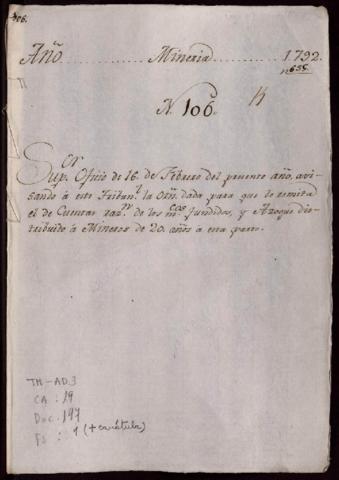 106.
Año Mineria 1792
nº 655.
N. 106. H
Sup.or Oficio de 16. de Febrero del presente año, avi-
sando à este Tribun.l la orn. dada para que le remita
el de Cuentas razn. de los m.cos fundidos, y Azogue dis-
tribuido à Mineros de 20. años à esta parte.
TM-AD3
CA : 19
Doc: 197
Fs : 1 (+ carátula)